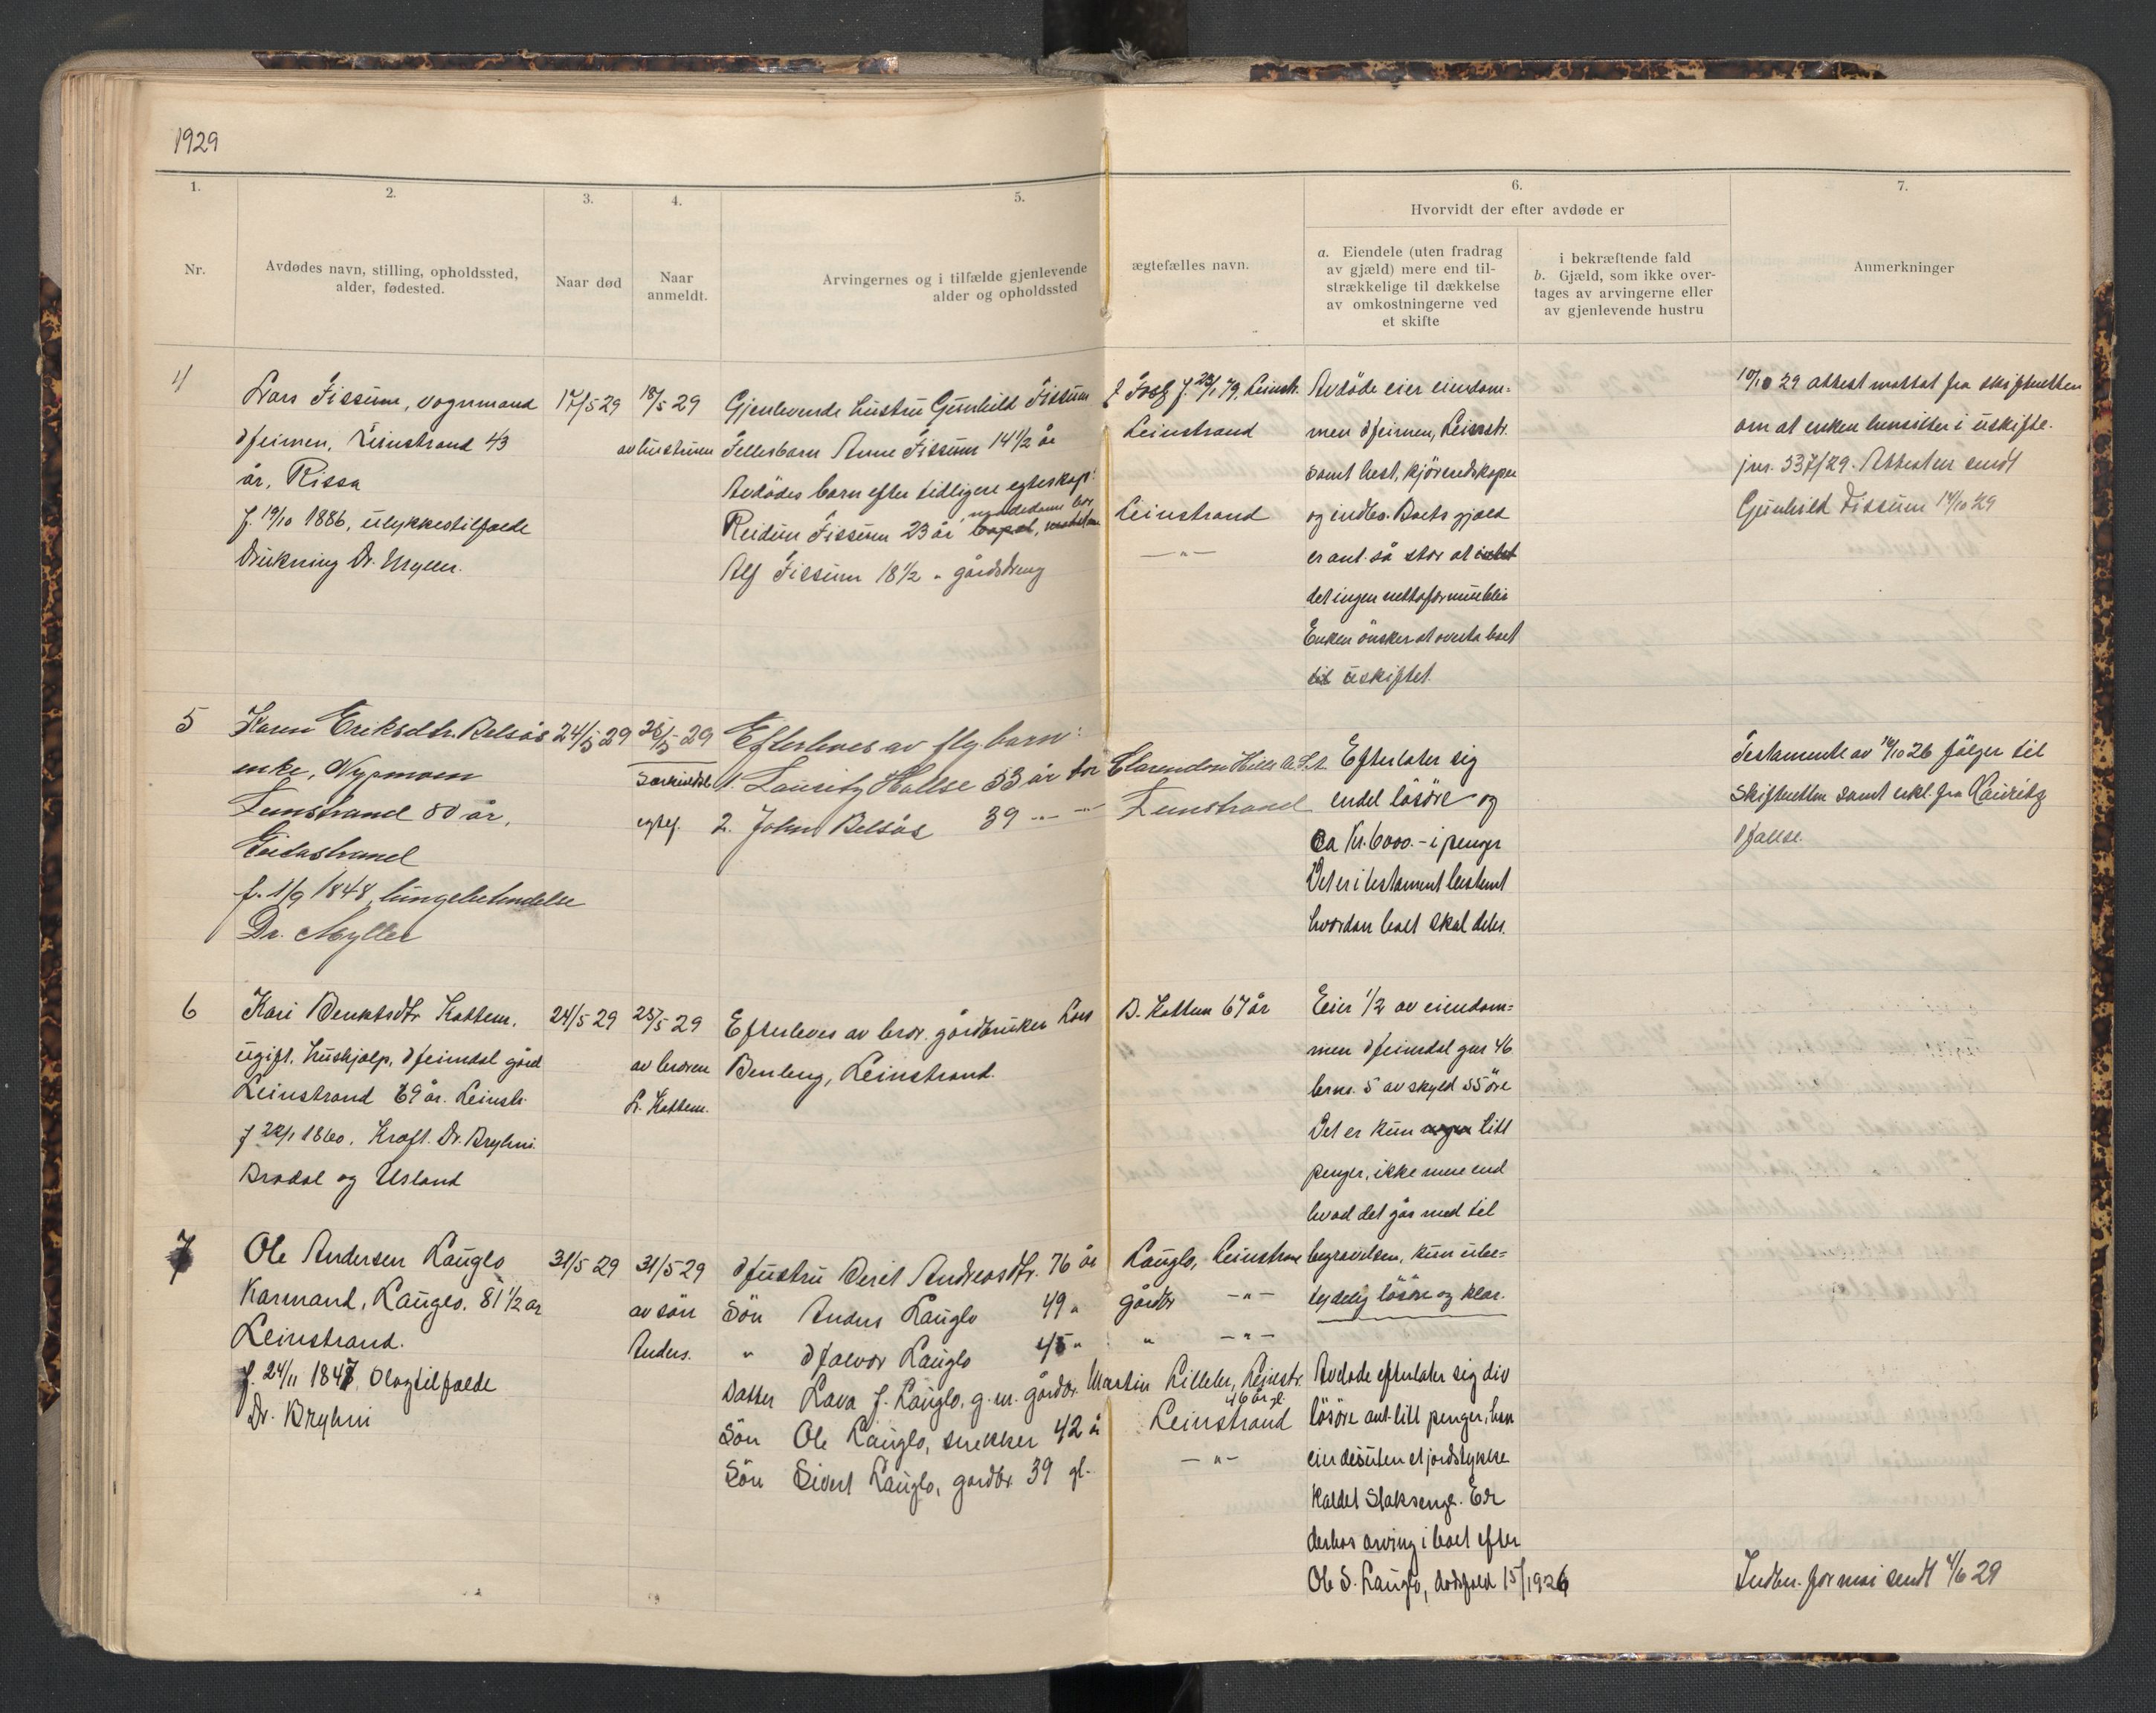 1929
1.
2.
3.
4.
5.
6.
7.
Hvorvidt der efter avdøde er
Nr.
Avdødes navn, stilling, opholdssted,
alder, fødested.
Naar død
Naar
anmeldt.
Arvingernes og i tilfælde gjenlevende
alder og opholdssted
ægtefælles navn.
a. Eiendele (uten fradrag
av gjæld) mere end til-
strækkelige til dækkelse
av omkostningerne ved
et skifte
i bekræftende fald
b. Gjæld, som ikke over-
tages av arvingerne eller
av gjenlevende hustru
Anmerkninger
4
Lars Fissum, vognmand
Heimen, Leinstrand 43
år, Rissa
f. 19/10 1886, ulykkestilfælde
Drukning Dr. Myller.
17/5 29
18/5 29
av hustruen
Gjenlevende hustru Gunhild Fissum
Fellesbarn Anne Fissum 14 1/2 år
Avdødes barn efter tidligere egteskap:
Reidun Fissum 23 år
Alf Fissum 18 1/2 " gårdsdreng
Leinstr.
Leinstrand
Leinstrand
— " —
Avdöde eier eiendom=
men Heimen, Leinstr.
samt hest, kjöreredskaper
og indbo. Boets gjæld
er ant. så stor at
det ingen nettoformue blir
Enken önsker at overta boet
uskiftet.
10/10 29 attest mottat fra skifteretten
om at enken hensitter i uskifte.
jnr. 537/29. Attesten sendt
Gunhild Fissum 14/10 29
5
Karen Eriksdtr. Belsås
enke, Nypmoen
Leinstrand 80 år,
f. 1/9 1848, lungebetendelse
Dr. Myller
24/5 29
25/5 29
Efterleves av flg. barn:
1. Lauritz Hallse 53 år for
2. John Belsås 39 — " —
Clarendon Hills
Leinstrand
Efterlater sig
endel lösöre og
ca kr. 6000.- i penger
Det er i testament bestemt
hvordan boet skal deles.
Testamente av 16/10 26 fölger til
skifteretten samt erkl. fra Lauritz
Hallse.
6
Kari Benktsdtr Kattem,
ugift. hushjælp, Heimdal gård
Leinstrand 69 år. Leinstr.
f 22/1 1860. Kræft. Dr. Bryhni
Brodal og Usland
24/5 29
25/5 29
av broren
L. Kattem.
Efterleves av bror, gårdbruker Lars
Benberg, Leinstrand.
B. Kattem 67 år
Eier 1/2 av eiendom=
men Heimdal gnr 46
brnr. 5 av skyld 55 öre
Det er kun litt
penger, ikke mere end
hvad det går med til
begravelsen, kun ube=
tydelig lösöre og klær.
7
Ole Andersen Lauglo
Kårmand, Lauglo. 81 1/2 år
Leinstrand.
f. 24/11 1847, slagtilfælde
Dr. Bryhni
31/5 29
31/5 29
av sön
Anders.
Hustru Berit Andreasdtr. 76 år
Sön Anders Lauglo 49 "
" Halvor Lauglo 45 "
Datter Lava f. Lauglo, g. m. gårdbr. Martin Lilleler, Leinstr.
46 år gl.
Sön Ole Lauglo, snekker 42 år
Sön Sivert Lauglo, gardbr. 39 gl.
Lauglo, Leinstrand
gårdbr — " —
" — " —
Leinstrand
— " —
Avdøde efterlater sig div
lösöre ant. litt penger, han
eier desuten et jordstykke
kaldet Slaksenge. Er
derhos arving i boet efter
Ole S. Lauglo, dødsfald 15/1926
Indber. for mai sendt 4/6 29